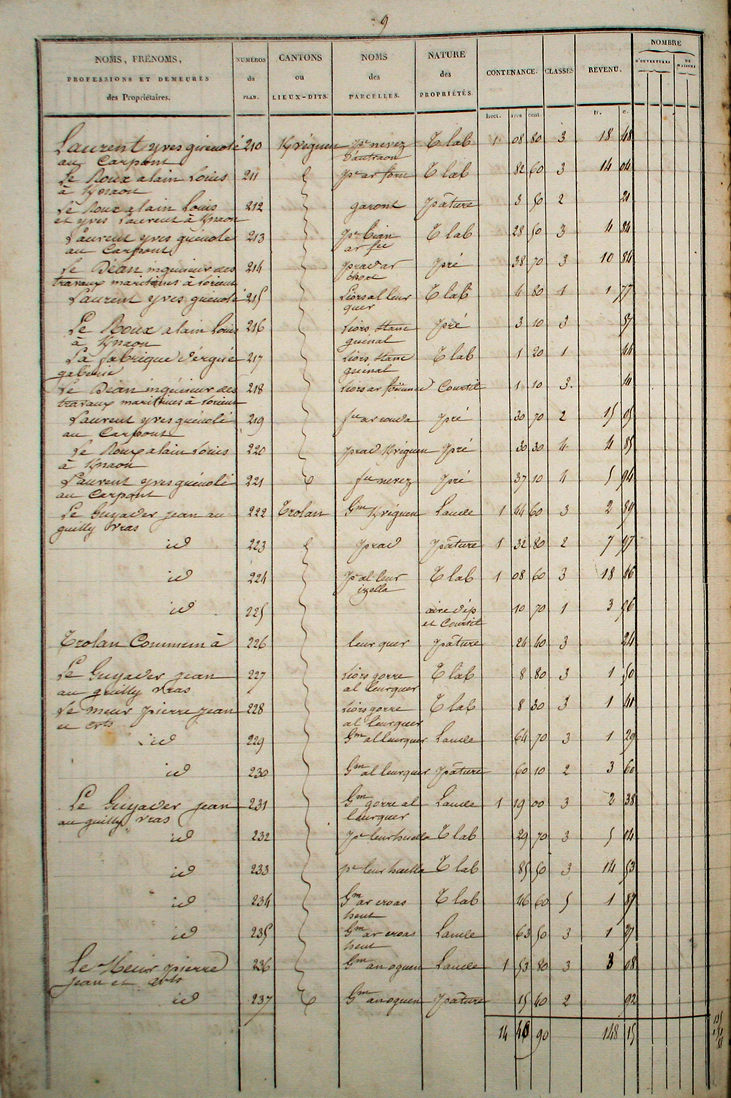 9
NOMS, PRÉNOMS, PROFESSIONS ET DEMEURES des Propriétaires. NUMÉROS du PLAN. CANTONS ou LIEUX-DITS. NOMS des PARCELLES. NATURE des PROPRIÉTÉS. CONTENANCE. CLASSES. REVENU. NOMBRE D'OUVERTURES DE MAISONS
hect. ares cent. fr. c.
Laurent yves guénolé 210 Kvéguen pr nevez T lab 1 08 80 3 18 48
au Carpont
Le Roux alain Louis 211 pr ar forn T lab 82 60 3 14 04
à Knaon
Le Roux alain Louis 212 garont pâture 3 50 2 21
et yves Laurent à Knaon
Laurent yves guénolé 213 pr bian T lab 28 50 3 4 84
au Carpont
Le Déan ingénieur des 214 prad ar pré 38 70 3 10 84
travaux maritimes à lorient
Laurent yves guénolé 215 liors al leur T lab 4 80 1 1 77
quer
Le Roux alain Louis 216 liors stanc pré 3 10 3 87
à Knaon guenal
La fabrique d'ergué 217 liors stanc T lab 1 20 1 44
gaberic guenal
Le Déan ingénieur des 218 liors ar Courtil 1 10 3 41
travaux maritimes à lorient
Laurent yves guénolé 219 pré 30 70 2 15 05
au Carpont
Le Roux alain Louis 220 prad Kvéguen pré 30 30 4 4 85
à Knaon
Laurent yves guénolé 221 fn nevez pré 37 10 4 5 94
au Carpont
Le Guyader jean au 222 Trolan Gm Kvéguen Lande 1 44 60 3 2 89
guilly vras
id 223 prad pâture 1 32 80 2 7 97
id 224 pr al leur T lab 1 08 60 3 18 46
izella
id 225 aire dép 10 70 1 3 96
et Courtil
Trolan Commun à 226 leur quer pâture 24 40 3 24
Le Guyader jean 227 liors gorre T lab 8 80 3 1 50
au guilly vras al leurquer
Le meur pierre jean 228 liors gorre T lab 8 30 3 1 41
et crts al leurquer
id 229 Gm al leurquer Lande 64 70 3 1 29
id 230 Gm al leurquer pâture 60 10 2 3 60
Le Guyader jean 231 Gm gorre al Lande 1 19 00 3 2 38
au guilly vras leurquer
id 232 pr leur huella T lab 29 70 3 5 04
id 233 pr leur huella T lab 85 50 3 14 53
id 234 Gm ar croas T lab 46 60 5 1 87
hent
id 235 Gm ar croas Lande 63 50 3 1 27
hent
Le Meur pierre 236 Gm an oguen Lande 1 53 80 3 3 08
jean et crts
id 237 Gm an oguen pâture 15 40 2 92
14 46 90 148 15